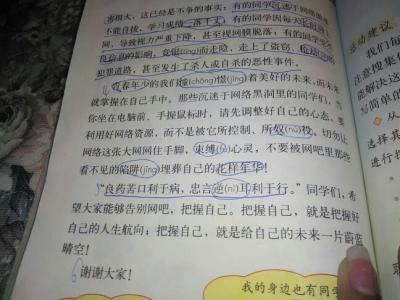 害很大，这已经是不争的事实：有的同学沉迷于网络游戏
不能自拔，学习成绩一落千丈；有的同学因每天长时间上
网，导致视力严重下降，甚至视网膜脱落；有的同学因受
不良信息的影响，竟铤(tǐng)而走险，走上了盗窃、抢劫的
犯罪道路，甚至发生了杀人或自杀的恶性事件。
青春年少的我们憧(chōng)憬(jǐng)着美好的未来，而未来
就掌握在自己手中。那些沉迷于网络黑洞里的同学们，当
你坐在电脑前、手握鼠标时，请先调整好自己的心态，要
利用好网络资源，而不是被它所控制、所奴(nú)役。切勿让
网络这张大网网住手脚，束缚(fù)心灵，不要被网吧里那些
看不见的陷阱(jǐng)埋葬自己的花样年华！
“良药苦口利于病，忠言逆(nì)耳利于行。”同学们，希
望大家能够告别网吧，把握自己。把握自己，就是把握好
自己的人生航向；把握自己，就是给自己的未来一片蔚蓝
晴空！
谢谢大家！
我的身边也有同学
活动建议
我们每
注意搜集
能解决这
写简单的
从
选择其
进行